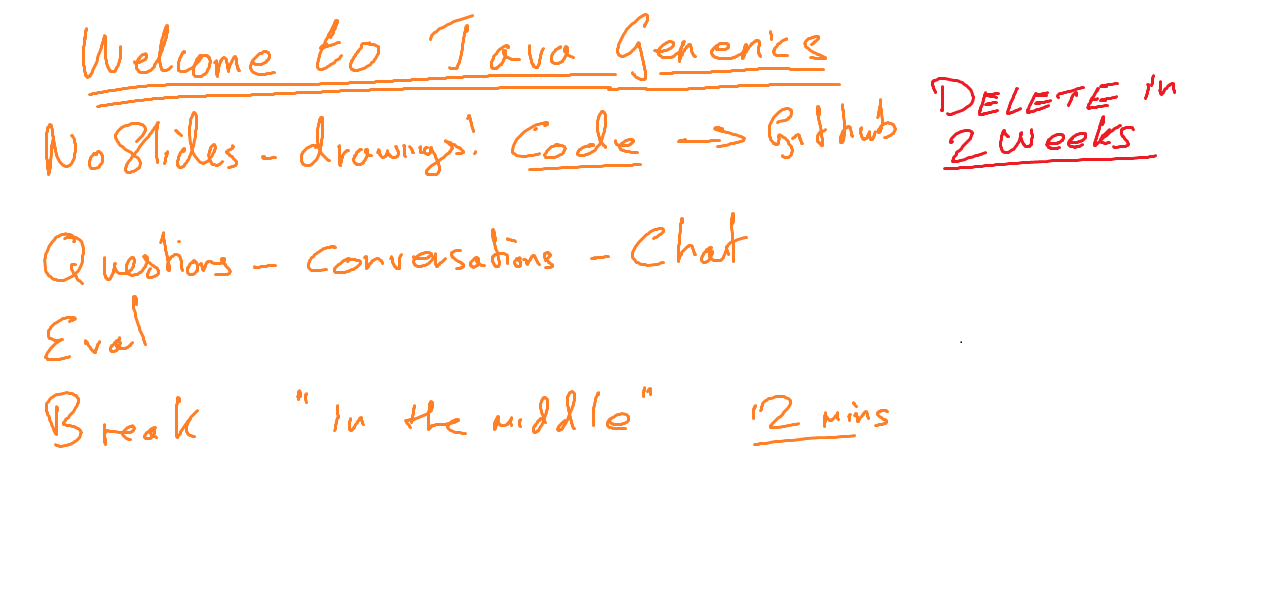 Welcome to Java Generics
No Slides - drawings! Code → Github
DELETE in
2 weeks
Questions - conversations - Chat
Eval
Break "in the middle" 12 mins